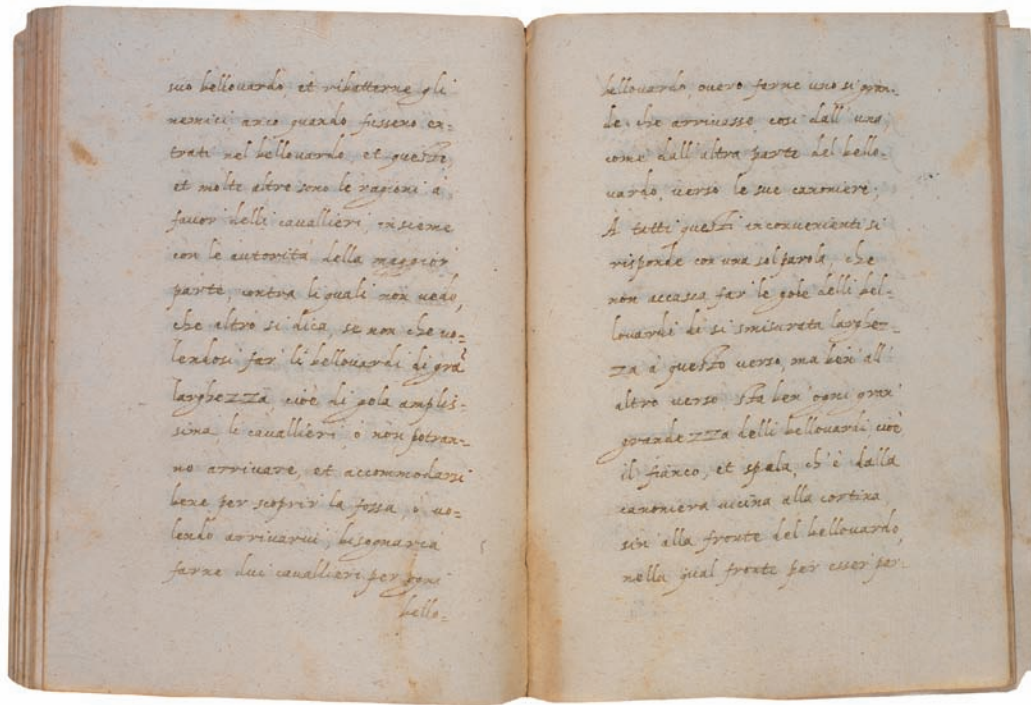 suo bellouardo, et ribatterne gli
nemici, anco quando fusseno en=
trati nel bellouardo, et queste,
et molte altre sono le ragioni à
fauor delli cauallieri, insieme
con le autorità della maggior
parte, contra li quali non uedo,
che altro si dica, se non che uo=
lendosi far li bellouardi di grã
larghezza, cioè di gola amplis=
sima, li cauallieri, ò non potran=
no arriuare, et accommodarsi
bene per scoprir la fossa, ò uo=
lendo arriuarui, bisognarea
farne dui cauallieri per ogni
bello=
bellouardo, ouero farne uno si gran=
de, che arriuasse cosi dall' una,
come dall' altra parte del bello=
uardo, uerso le sue canoniere;
A tutti questi inconuenienti si
risponde con una sol parola, che
non accasca far le gole delli bel=
louardi di si smisurata larghez=
za à questo uerso, ma ben' all'
altro uerso sta ben' ogni gran'
grandezza delli bellouardi, cioè
il fianco, et spala, ch' è dalla
canoniera uicina alla cortina,
sin' alla fronte del bellouardo,
nella qual fronte per esser per=